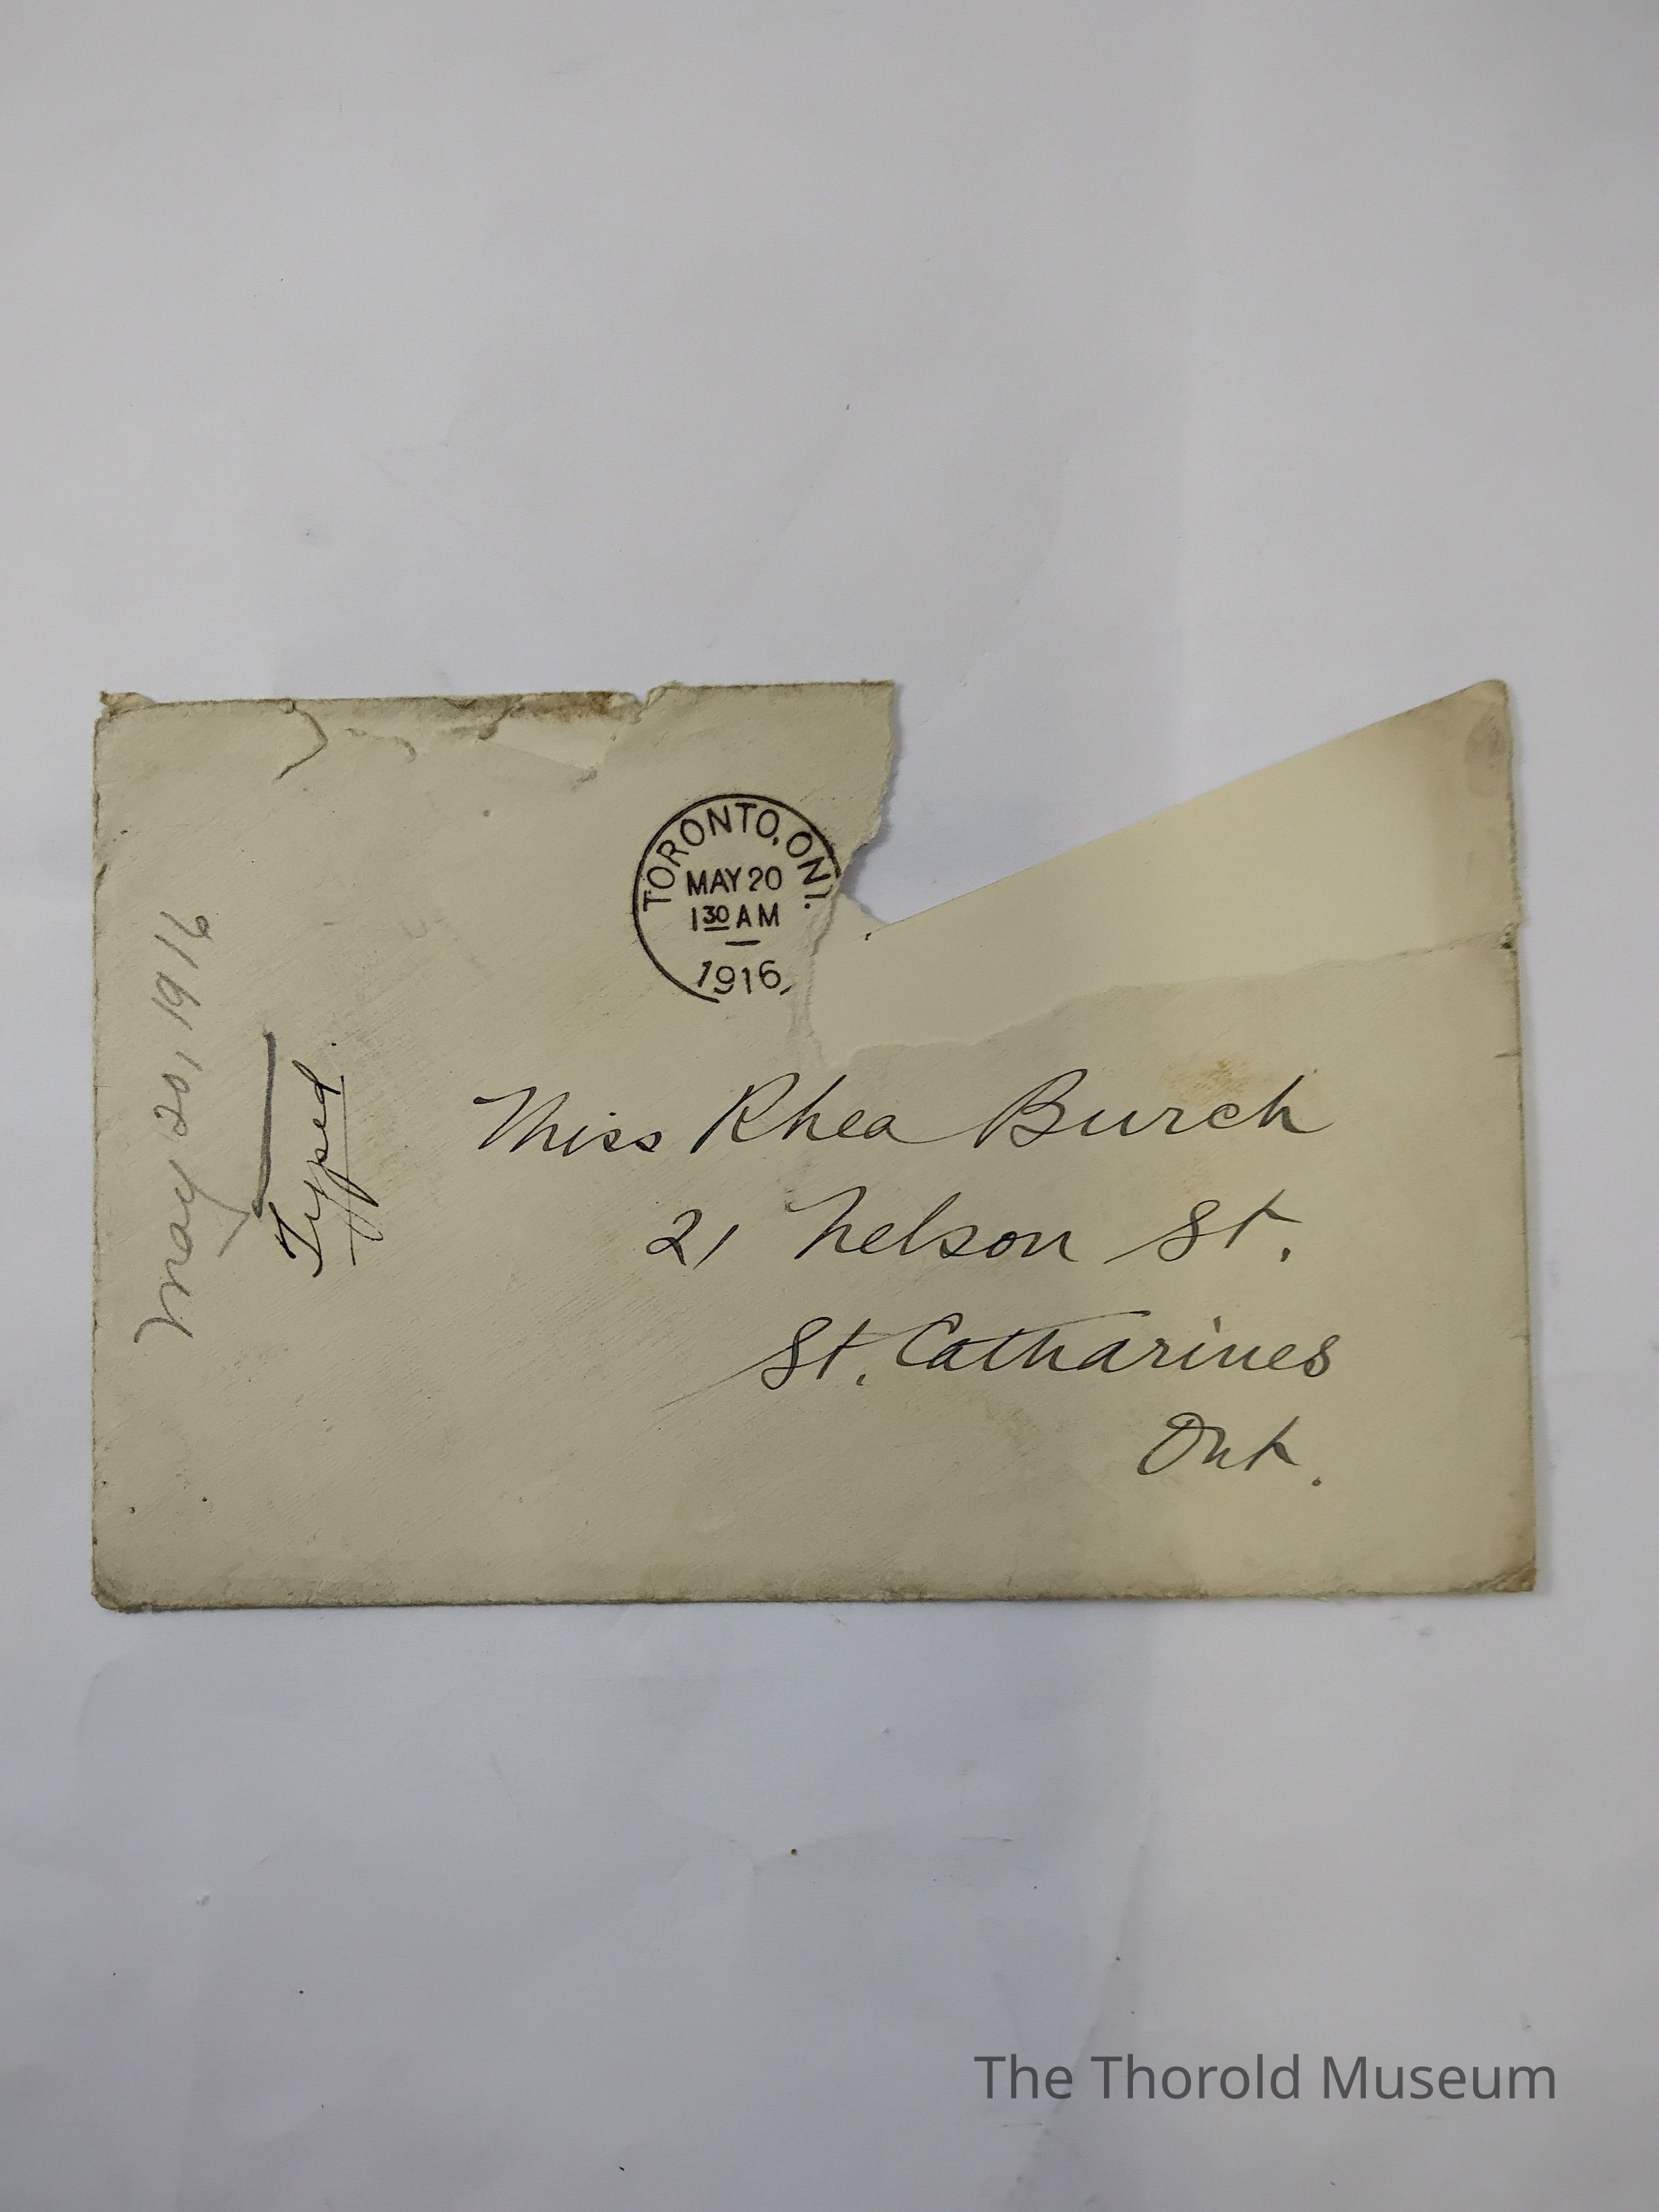 TORONTO, ONT.
MAY 20
1 30 AM
1916
May 20, 1916
Typed.
Miss Rhea Burch
21 Nelson St.
St. Catharines
Ont.
The Thorold Museum